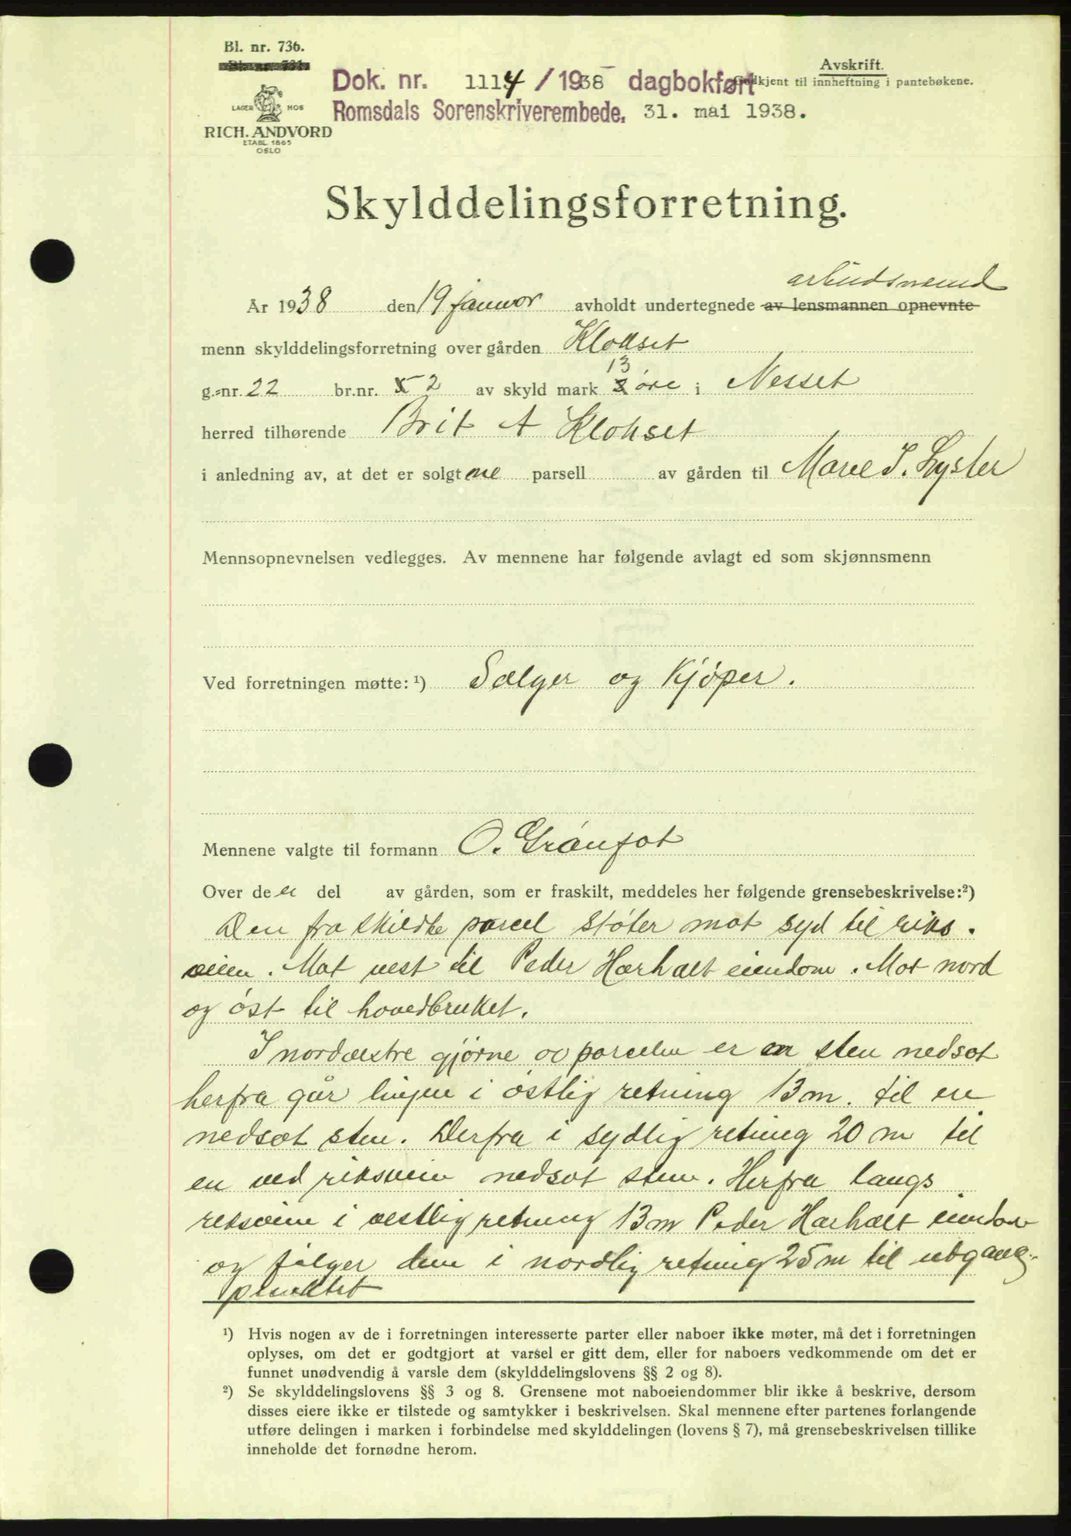 Bl. nr. 736.
Avskrift.
Dok. nr. 1114 / 1938 dagbokført
Godkjent til innheftning i pantebøkene.
LAGER MOE
Romsdals Sorenskriverembede. 31. mai 1938.
RICH. ANDVORD
ETABL. 1865
OSLO
Skylddelingsforretning.
arbeidsmend
År 1938 den 19 januar avholdt undertegnede av lensmannen opnevnte
menn skylddelingsforretning over gården Klokset
13
g.-nr. 22 br.nr. 2 av skyld mark øre i Nesset
herred tilhørende Brit A Klokset
i anledning av, at det er solgt ene parsell av gården til Marie I. Lyster
Mennsopnevnelsen vedlegges. Av mennene har følgende avlagt ed som skjønnsmenn
Ved forretningen møtte: ¹) Sælger og Kjøper.
Mennene valgte til formann O. Gránfot
Over den del av gården, som er fraskilt, meddeles her følgende grensebeskrivelse:²)
Den fraskildte parcel støter mot syd til riks.
veien. Mot vest til Peder Harhalt eiendom. Mot nord
og øst til hovedbruket.
I nordvestre gjørne av parcelen er en sten nedsat
herfra går linjen i østlig retning 13 m. til en
nedsat sten. Derfra i sydlig retning 20 m til
en ved riksvein nedsat sten. Herfra langs
riksveine i vestlig retning 13 m Peder Harhalt eiendom
og følger den i nordlig retning 25 m til utgang-
punktet
¹) Hvis nogen av de i forretningen interesserte parter eller naboer ikke møter, må det i forretningen
oplyses, om det er godtgjort at varsel er gitt dem, eller for naboers vedkommende om det er
funnet unødvendig å varsle dem (skylddelingslovens §§ 2 og 8).
²) Se skylddelingslovens §§ 3 og 8. Grensene mot naboeiendommer blir ikke å beskrive, dersom
disses eiere ikke er tilstede og samtykker i beskrivelsen. Skal mennene efter partenes forlangende
utføre delingen i marken i forbindelse med skylddelingen (lovens § 7), må grensebeskrivelsen tillike
inneholde det fornødne herom.